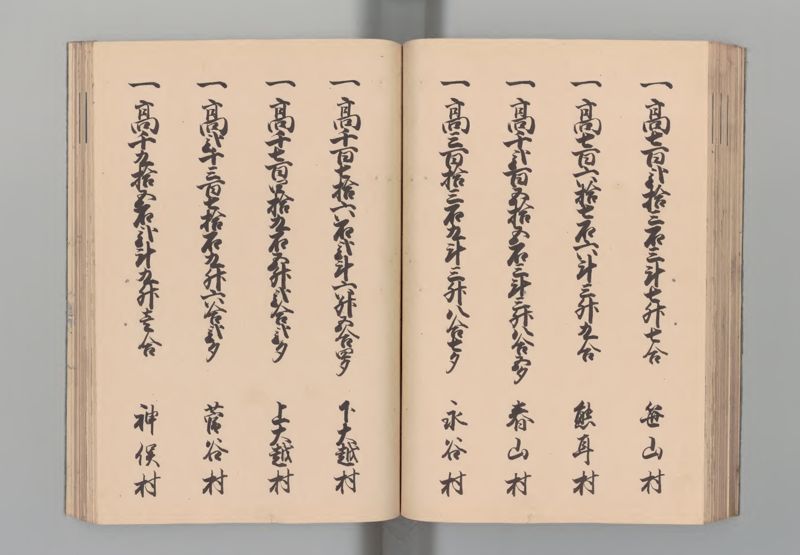 一高七百弐拾三石三斗七升七合 笹山村
一高七百六拾七石六斗三升九合 熊耳村
一高千弐百五拾五石三斗三升八合五夕 春山村
一高三百拾三石九斗三升八合七夕 永谷村
一高千百七拾六石弐斗六升五合四夕 下大越村
一高千七百四拾九石五升弐合弐夕 上大越村
一高弐千三百七拾石九升六合弐夕 菅谷村
一高千九拾五石弐斗九升壱合 神俣村